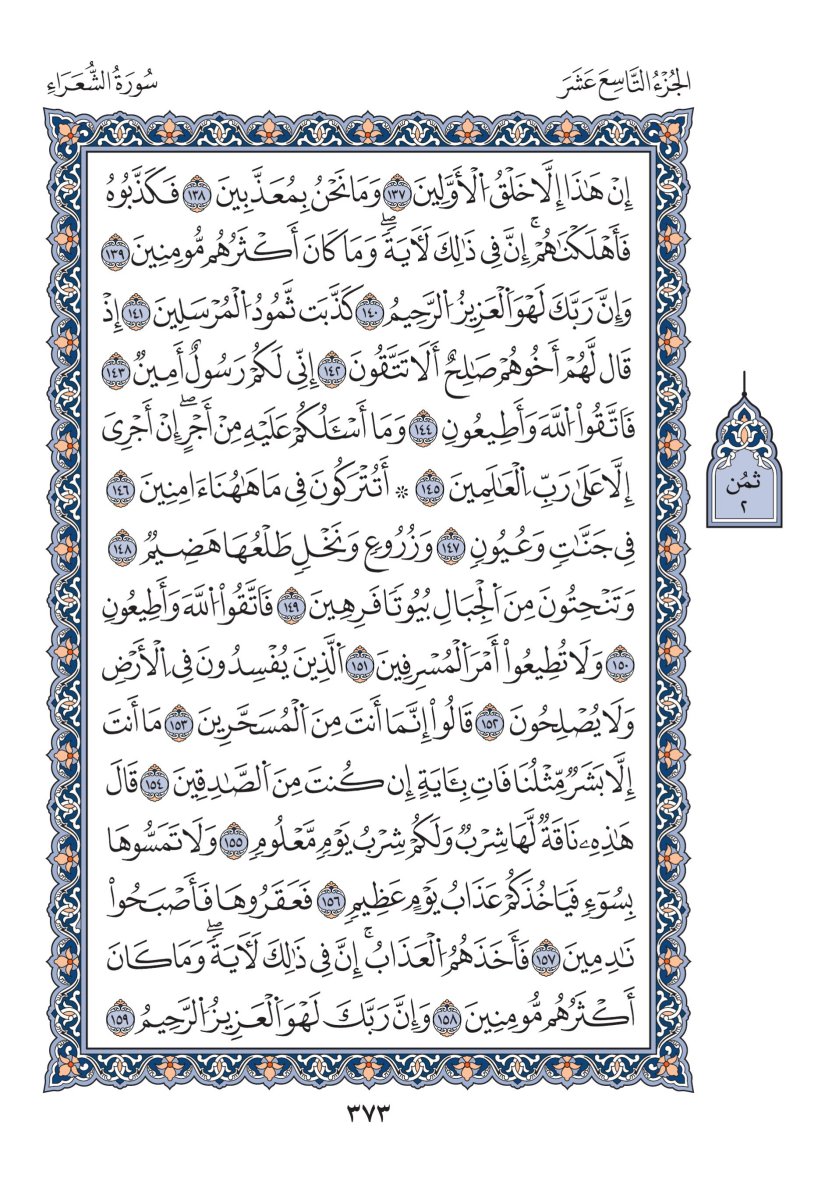 الجُزْءُ التَّاسِعَ عَشَرَ
سُورَةُ الشُّعَرَاءِ
إِنْ هَٰذَا إِلَّا خَلْقُ اُ۬لْأَوَّلِينَ ١٣٧ وَمَا نَحْنُ بِمُعَذَّبِينَ ١٣٨ فَكَذَّبُوهُ
فَأَهْلَكْنَٰهُمْۚ إِنَّ فِي ذَٰلِكَ لَأٓيَةٗۖ وَمَا كَانَ أَكْثَرُهُم مُّومِنِينَ ١٣٩
وَإِنَّ رَبَّكَ لَهْوَ اَ۬لْعَزِيزُ اُ۬لرَّحِيمُ ١٤٠ كَذَّبَت ثَّمُودُ اُ۬لْمُرْسَلِينَ ١٤١ إِذْ
قَال لَّهُمْ أَخُوهُمْ صَٰلِحٌ أَلَا تَتَّقُونَ ١٤٢ إِنِّي لَكُمْ رَسُولٌ أَمِينٌ ١٤٣
فَاتَّقُواْ اُ۬للَّهَ وَأَطِيعُونِ ١٤٤ وَمَا أَسْـَٔلُكُمْ عَلَيْهِ مِنْ أَجْرٍۖ إِنْ أَجْرِيَ
إِلَّا عَلَىٰ رَبِّ اِ۬لْعَٰلَمِينَ ١٤٥ ۞ أَتُتْرَكُونَ فِي مَا هَٰهُنَا ءَامِنِينَ ١٤٦
فِي جَنَّٰتٖ وَعُيُونٖ ١٤٧ وَزُرُوعٖ وَنَخْلٖ طَلْعُهَا هَضِيمٞ ١٤٨
وَتَنْحِتُونَ مِنَ اَ۬لْجِبَالِ بُيُوتٗا فَرِهِينَ ١٤٩ فَاتَّقُواْ اُ۬للَّهَ وَأَطِيعُونِ
١٥٠ وَلَا تُطِيعُواْ أَمْرَ اَ۬لْمُسْرِفِينَ ١٥١ اَ۬لَّذِينَ يُفْسِدُونَ فِي اِ۬لْأَرْضِ
وَلَا يُصْلِحُونَ ١٥٢ قَالُواْ إِنَّمَا أَنتَ مِنَ اَ۬لْمُسَحَّرِينَ ١٥٣ مَا أَنتَ
إِلَّا بَشَرٞ مِّثْلُنَا فَاتِ بِـَٔايَةٍ إِن كُنتَ مِنَ اَ۬لصَّٰدِقِينَ ١٥٤ قَالَ
هَٰذِهِۦ نَاقَةٞ لَّهَا شِرْبٞ وَلَكُمْ شِرْبُ يَوْمٖ مَّعْلُومٖ ١٥٥ وَلَا تَمَسُّوهَا
بِسُوٓءٖ فَيَاخُذَكُمْ عَذَابُ يَوْمٍ عَظِيمٖ ١٥٦ فَعَقَرُوهَا فَأَصْبَحُواْ
نَٰدِمِينَ ١٥٧ فَأَخَذَهُمُ اُ۬لْعَذَابُۚ إِنَّ فِي ذَٰلِكَ لَأٓيَةٗۖ وَمَا كَانَ
أَكْثَرُهُم مُّومِنِينَ ١٥٨ وَإِنَّ رَبَّكَ لَهْوَ اَ۬لْعَزِيزُ اُ۬لرَّحِيمُ ١٥٩
ثُمُن
٢
٣٧٣